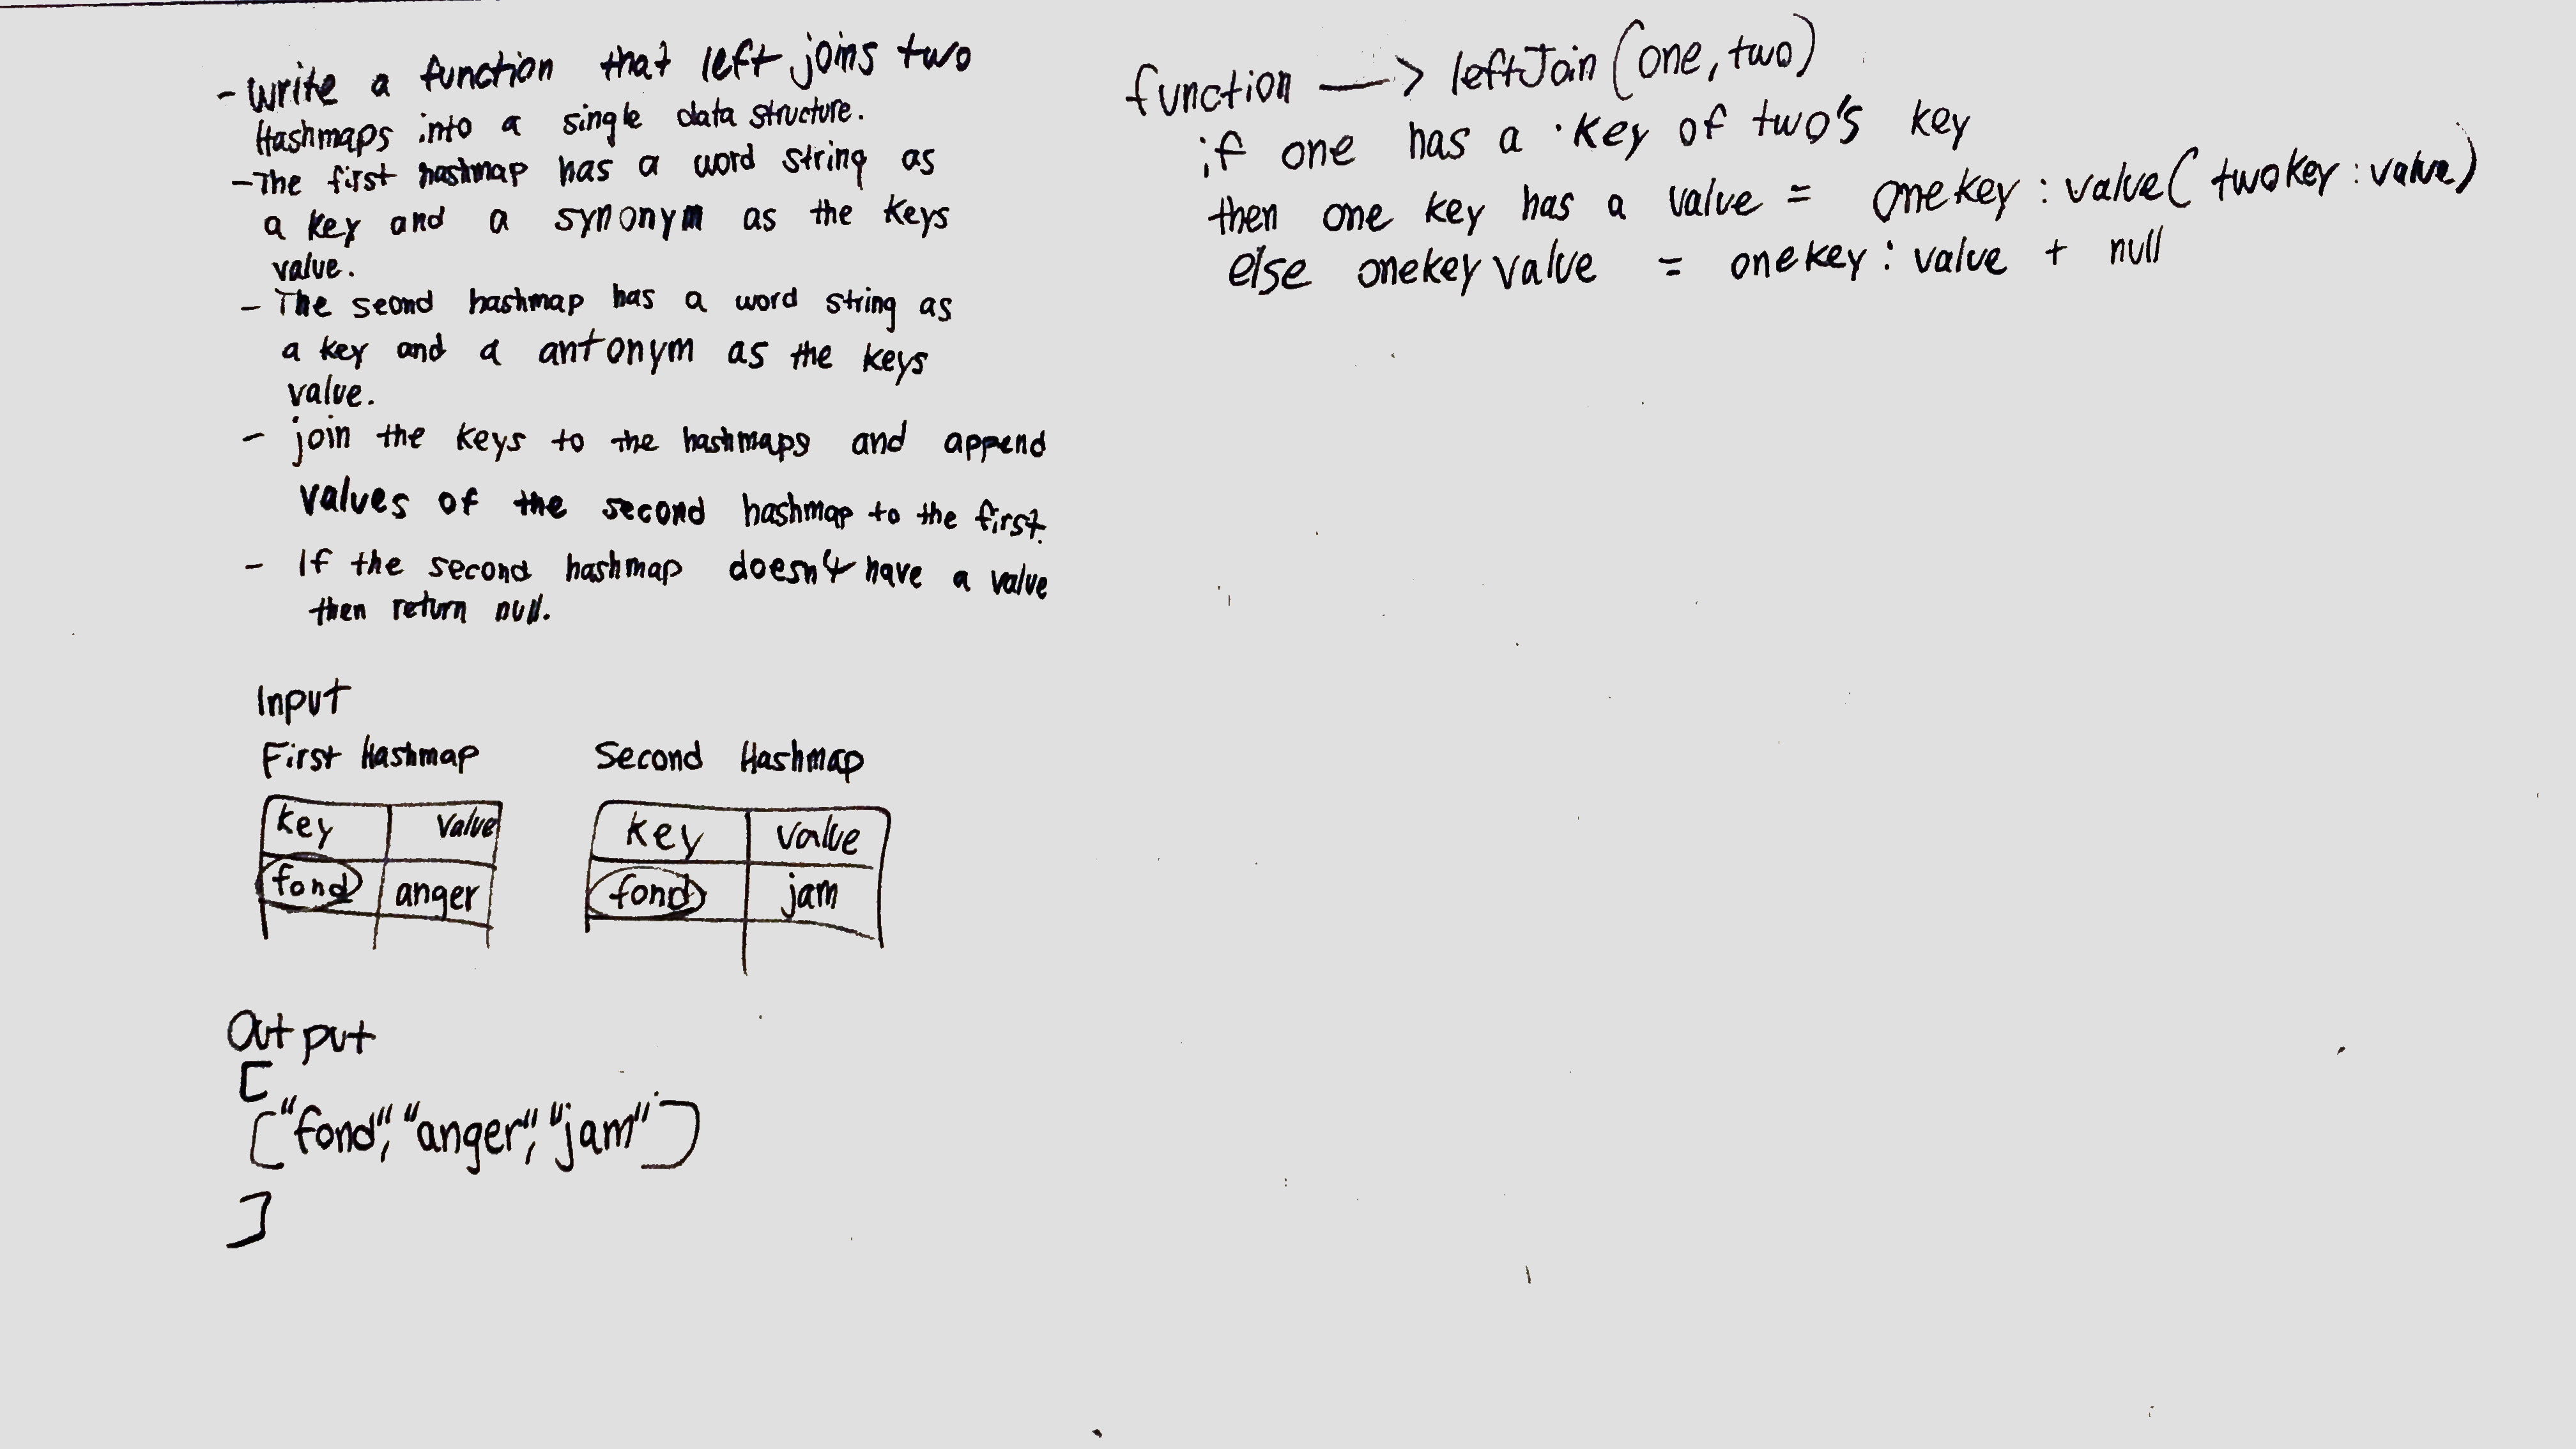 - Write a function that left joins two
Hashmaps into a single data structure.
- The first hashmap has a word string as
a key and a synonym as the keys
value.
- The second hashmap has a word string as
a key and a antonym as the keys
value.
- join the keys to the hashmaps and append
values of the second hashmap to the first.
- If the second hashmap doesn't have a value
then return null.
Input
First Hashmap Second Hashmap
key value key value
fond anger fond jam
Output
[
["fond", "anger", "jam"]
]
function —> leftJoin(one, two)
if one has a key of two's key
then one key has a value = onekey : value( twokey : value)
else onekey value = onekey : value + null